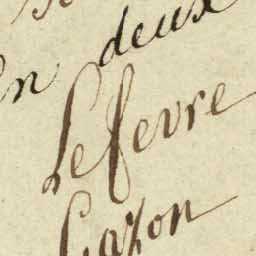 En deux
Lefevre
Cazon